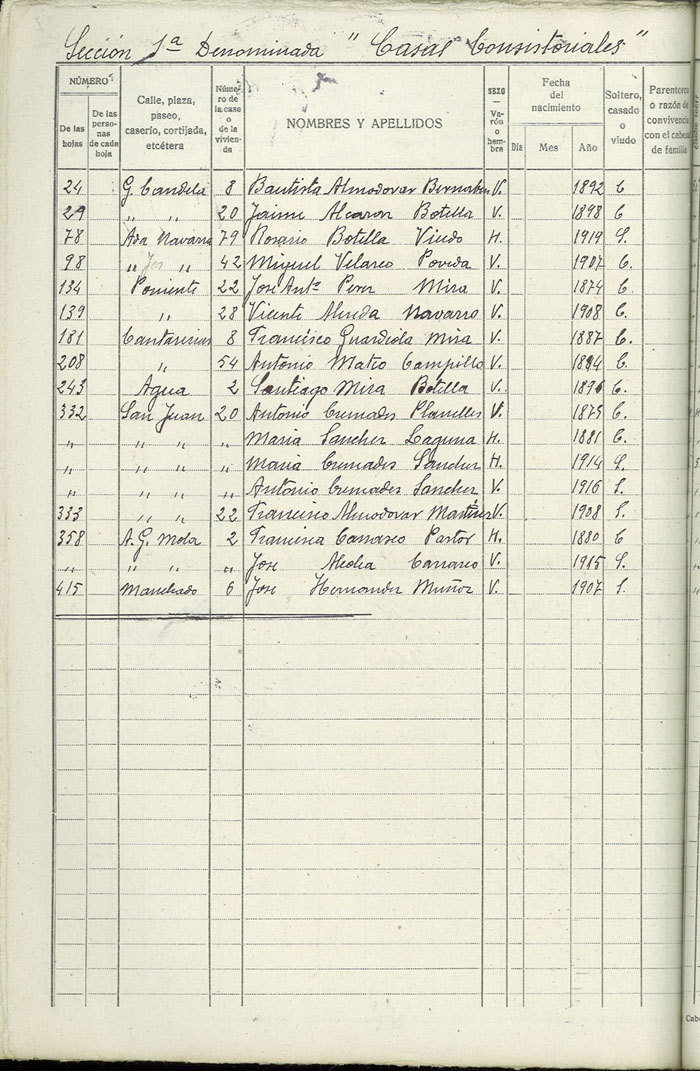 Sección 1ª Denominada "Casas Consistoriales"
NÚMERO
De las hojas
De las personas de cada hoja
Calle, plaza, paseo, caserío, cortijada, etcétera
Número de la casa o de la vivienda
NOMBRES Y APELLIDOS
SEXO — Varón o hembra
Fecha del nacimiento
Día Mes Año
Soltero, casado o viudo
Parentesco o razón de convivencia con el cabeza de familia
24 G. Candela 8 Bautista Almodovar Bernabeu V. 1892 C
29 " " 20 Jaime Alcaron Botella V. 1898 C
78 Ada Navarra 79 Rosario Botella Viudo H. 1919 S.
98 " " 42 Miguel Velasco Poveda V. 1907 C.
134 Poniente 22 Jose Antº Perez Mira V. 1874 C.
139 " 28 Vicente Navarro V. 1908 C.
181 8 Francisco Guardiola Mira V. 1887 C.
208 " 54 Antonio Mateo Campillo V. 1884 C.
243 Agua 2 Santiago Mira Botella V. 1896 C.
332 San Juan 20 Antonio Cremades Planelles V. 1875 C.
" " " " Maria Sanchez Laguna H. 1881 C.
" " " " Maria Cremades Sanchez H. 1914 S.
" " " " Antonio Cremades Sanchez V. 1916 S.
333 " " 22 Francisco Almodovar Martinez V. 1908 S.
358 A. G. Mola 2 Francisca Carrasco Pastor H. 1880 C
" " " " Jose Carrasco V. 1915 S.
415 Marchado 6 Jose Hernandez Muñoz V. 1907 S.